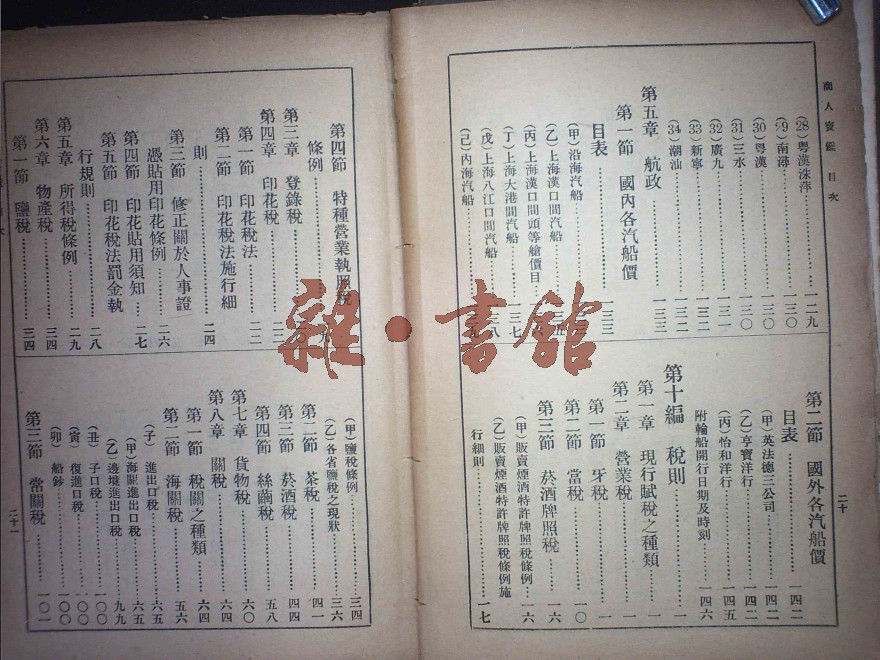 商人寶鑑 目次
(28)粵漢洙萍……一二九
(29)南潯……一三〇
(30)粵漢……一三〇
(31)三水……一三〇
(32)廣九……一三一
(33)新寧……一三二
(34)潮汕……一三二
第五章 航政……一三三
第一節 國內各汽船價
目表……一三三
(甲)沿海汽船
(乙)上海漢口間汽船
(丙)上海漢口間頭等艙價目
(丁)上海大港間汽船……一三七
(戊)上海八江口間汽船
(己)內海汽船
第二節 國外各汽船價
目表……一四二
(甲)英法德三公司……一四二
(乙)亨寶洋行……一四二
(丙)怡和洋行……一四五
附輪船開行日期及時刻……一四六
第十編 稅則
第一章 現行賦稅之種類……一
第二章 營業稅……一
第一節 牙稅……一
第二節 當稅……一〇
第三節 菸酒牌照稅……一六
(甲)販賣煙酒特許牌照稅條例……一六
(乙)販賣煙酒特許牌照稅條例施
行細則……一七
二十
第四節 特種營業執照稅
條例
第三章 登錄稅
第四章 印花稅……二二
第一節 印花稅法……二二
第二節 印花稅法施行細
則……二四
第三節 修正關於人事證
憑貼用印花條例……二六
第四節 印花貼用須知……二七
第五節 印花稅法罰金執
行規則……二八
第五章 所得稅條例……二九
第六章 物產稅……三四
第一節 鹽稅……三四
(甲)鹽稅條例……三四
(乙)各省鹽稅之現狀……三六
第二節 茶稅……四一
第三節 菸酒稅……四四
第四節 絲繭稅……五八
第七章 貨物稅……六〇
第八章 關稅……六四
第一節 稅關之種類……六四
第二節 海關稅……五六
(子)進出口稅……六五
(甲)海關進出口稅……六五
(乙)邊境進出口稅……九九
(丑)子口稅……一〇〇
(寅)復進口稅……一〇〇
(卯)船鈔……一〇〇
第三節 常關稅……一〇一
二十一
雜·書館